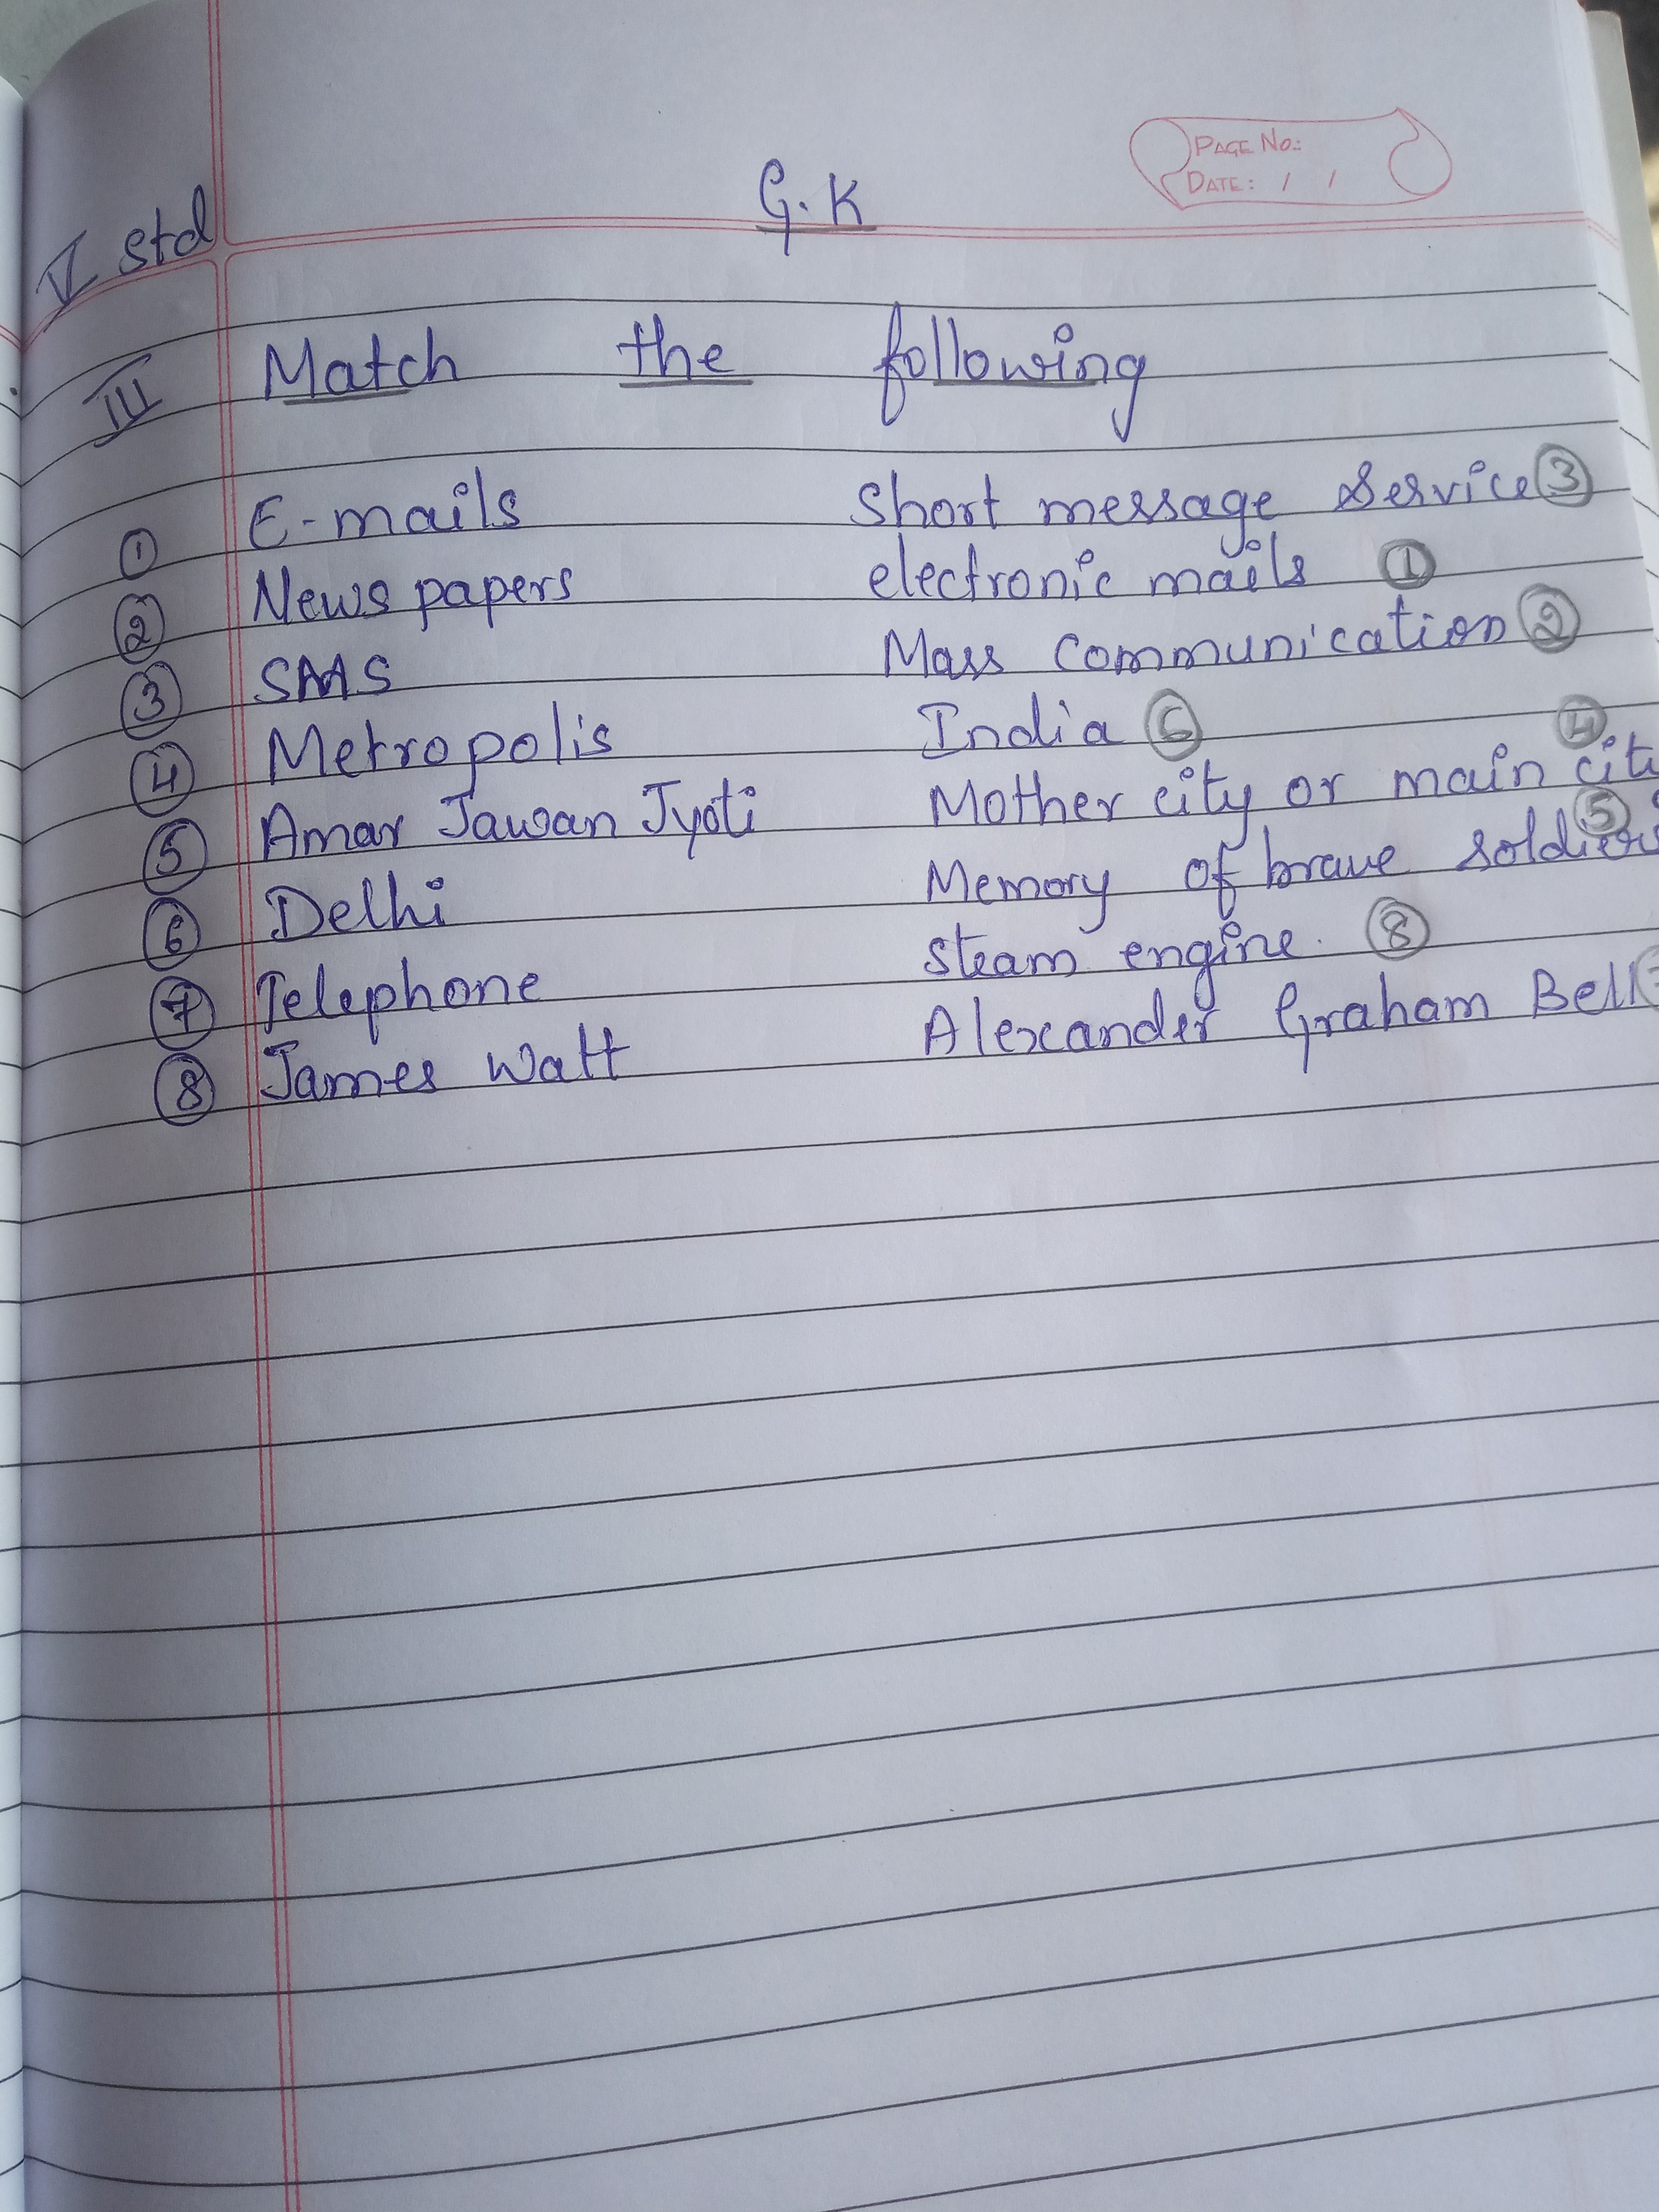 PAGE NO.:
DATE: / /
G.K
V std
III Match the following
① E-mails Short message Service ③
② News papers electronic mails ①
③ SMS Mass Communication ②
④ Metropolis India ⑥
⑤ Amar Jawan Jyoti Mother city or main cit ④
⑥ Delhi Memory of brave soldiers ⑤
⑦ Telephone Steam engine. ⑧
⑧ James Watt Alexander Graham Bell